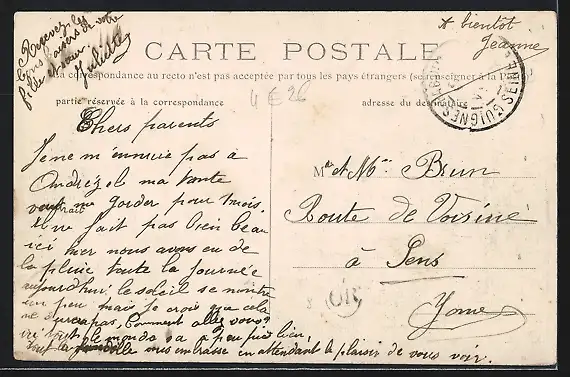 Recevez les
bons baisers de votre
fille chérie
Juliette
à bientôt
Jeanne
CARTE POSTALE
La correspondance au recto n'est pas acceptée par tous les pays étrangers (se renseigner à la Poste)
partie réservée à la correspondance
adresse du destinataire
4 E 26
GUIGNES SEINE
Chers parents
Je ne m'ennuie pas à
Andrézel ma tante
me garder pour 1 mois.
Il ne fait pas bien beau
ici hier nous avons eu de
la pluie toute la journée
aujourd'hui le soleil se montre
un peu mais je crois que cela
ne durera pas, Comment allez vous?
ici tout le monde va à peu près bien.
Toute la famille vous embrasse en attendant le plaisir de vous voir.
Mr et Mme Brun
Route de Voisine
à Sens
OR
Yonne